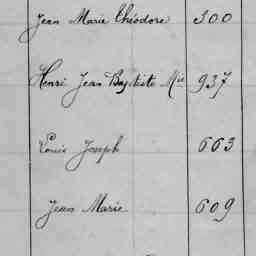 Jean Marie Théodore 300
Henri Jean Baptiste Mie 937
Louis Joseph 663
Jean Marie 609